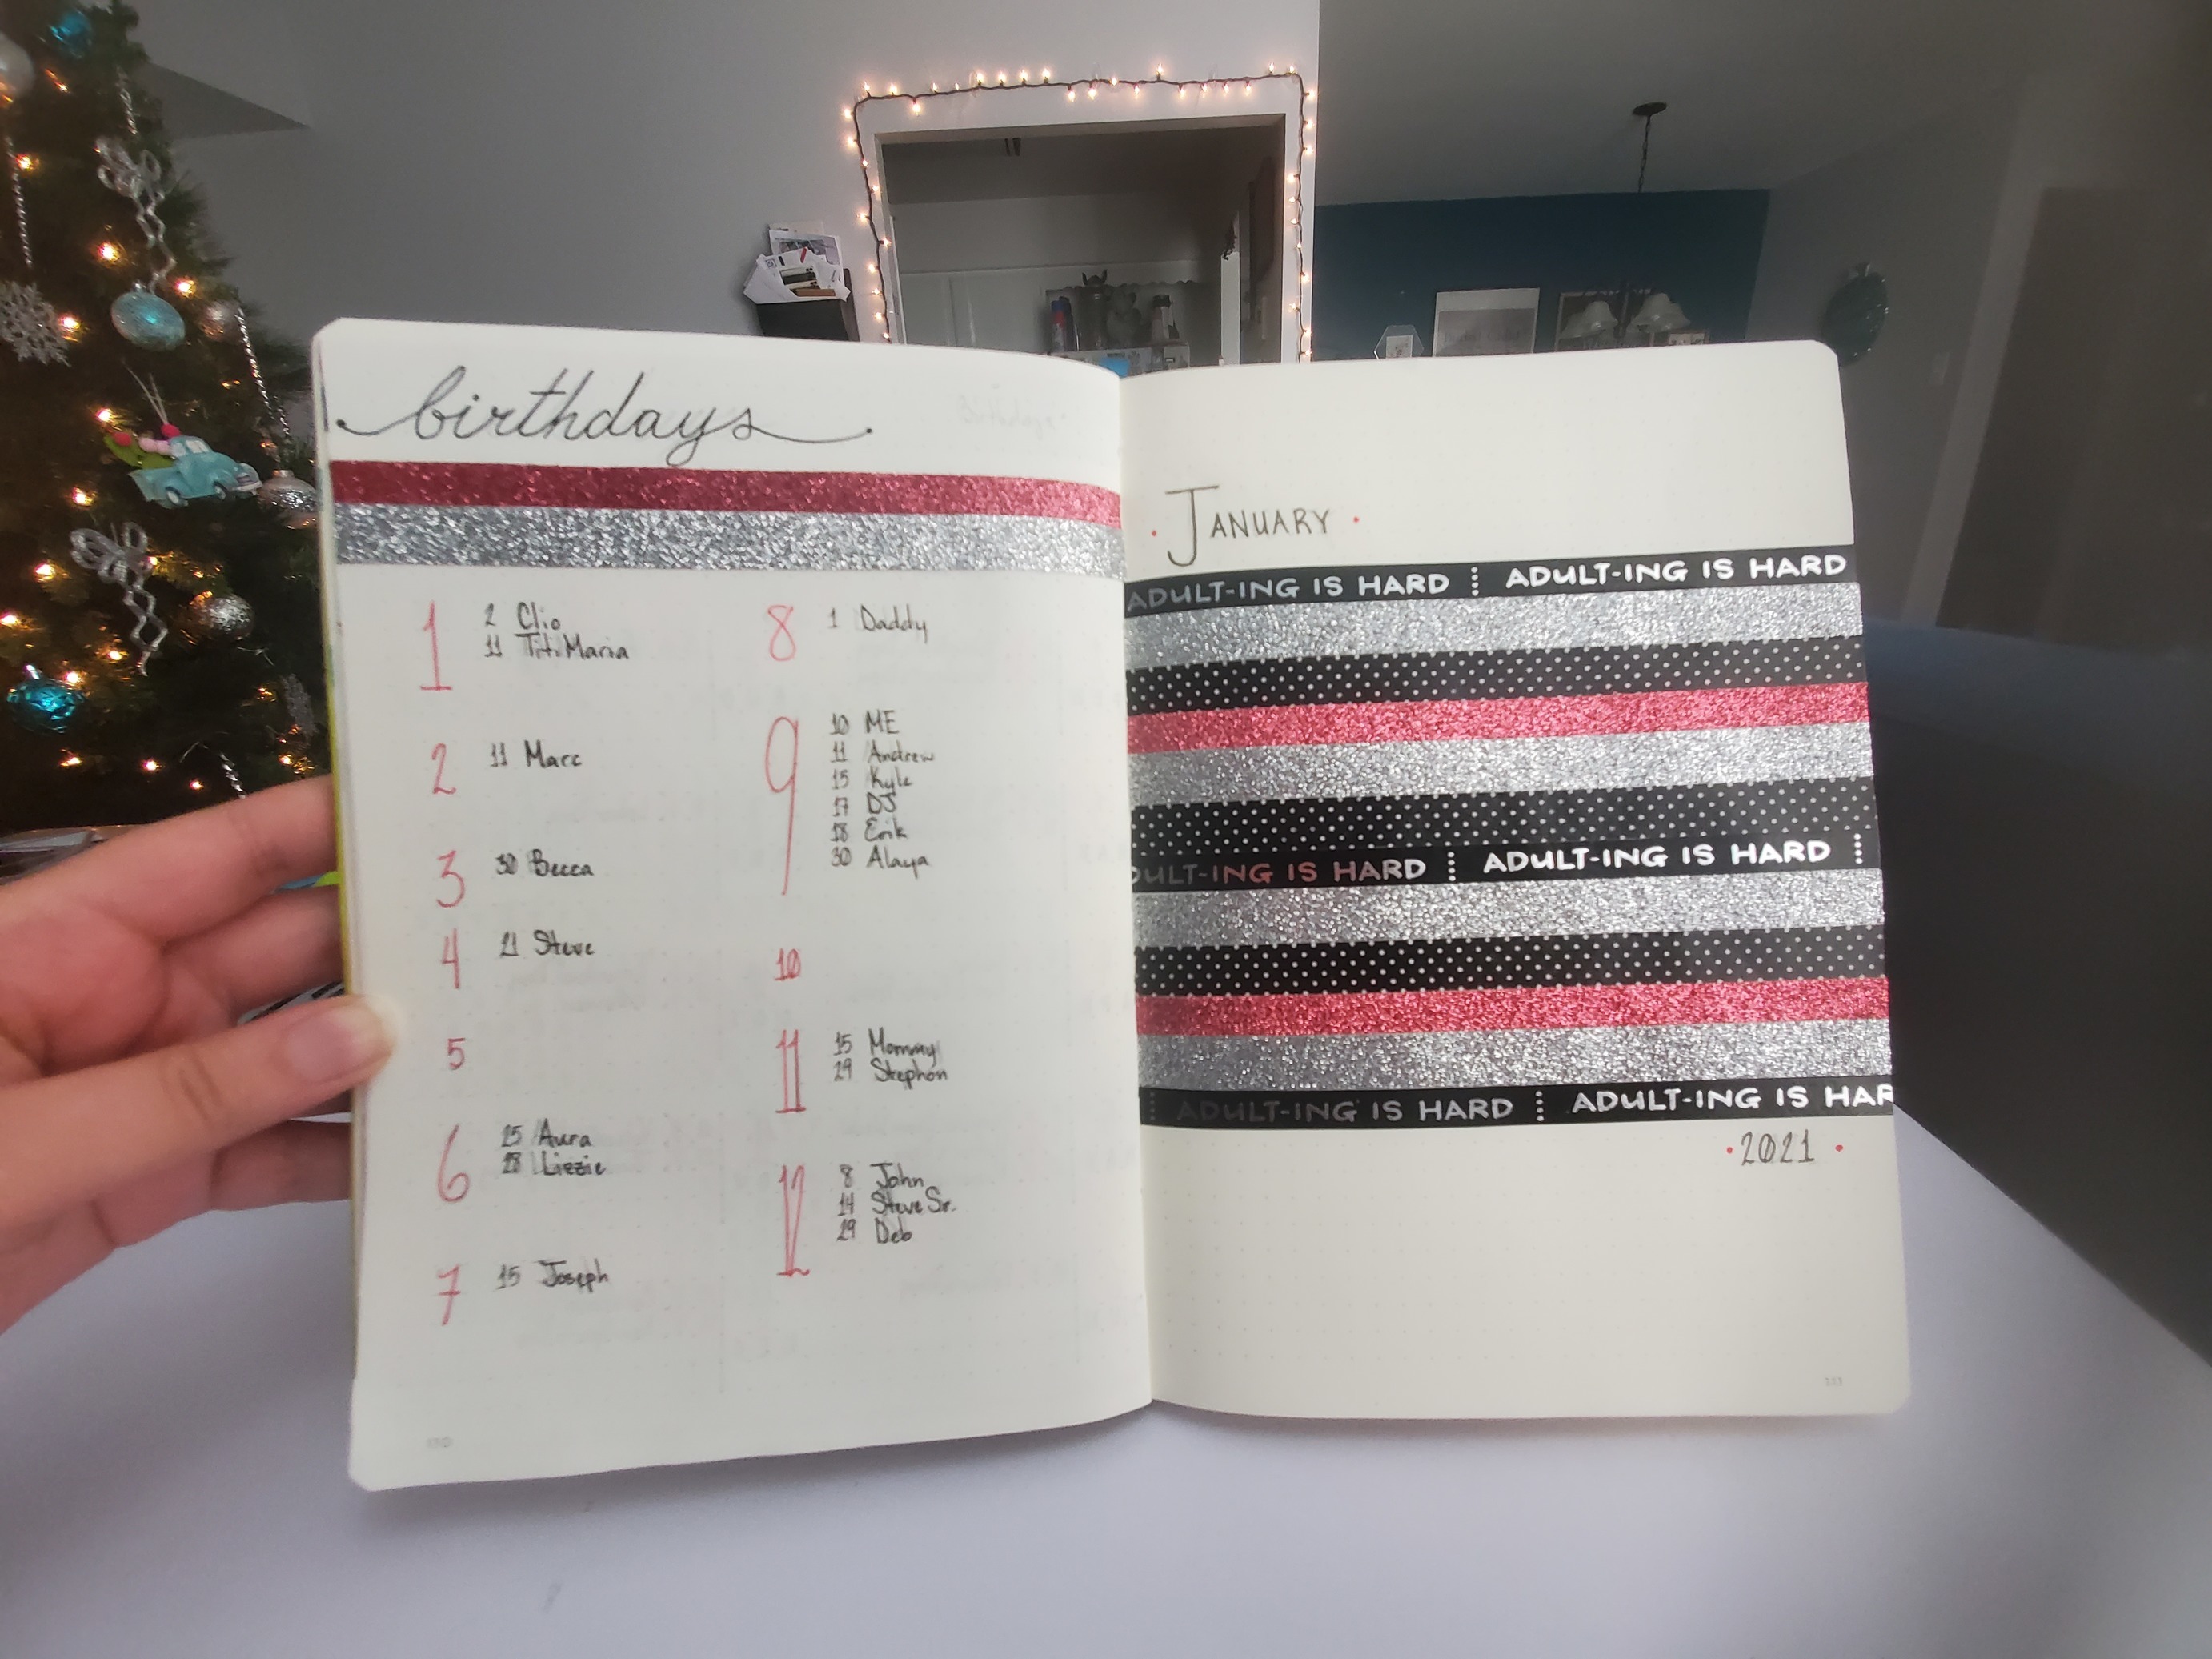 birthdays
1
2 Clio
11 Titi Maria
2
11 Marc
3
30 Becca
4
21 Steve
5
6
25 Aura
28 Lizzie
7
15 Joseph
8
1 Daddy
9
10 ME
11 Andrew
15 Kyle
17 DJ
18 Erik
30 Alaya
10
11
15 Mommy
29 Stephon
12
8 John
14 Steve Sr.
29 Deb
110
JANUARY
ADULT-ING IS HARD ADULT-ING IS HARD
ADULT-ING IS HARD ADULT-ING IS HARD
ADULT-ING IS HARD ADULT-ING IS HAR
2021
111